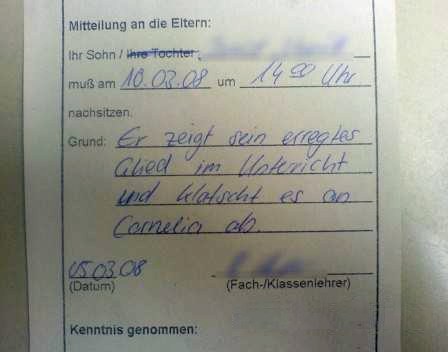 Mitteilung an die Eltern:
Ihr Sohn / Ihre Tochter
muß am 10.03.08 um 14⁰⁰ Uhr
nachsitzen.
Grund: Er zeigt sein erregtes
Glied im Unterricht
und klatscht es an
Cornelia ab.
05.03.08
(Datum) (Fach-/Klassenlehrer)
Kenntnis genommen: